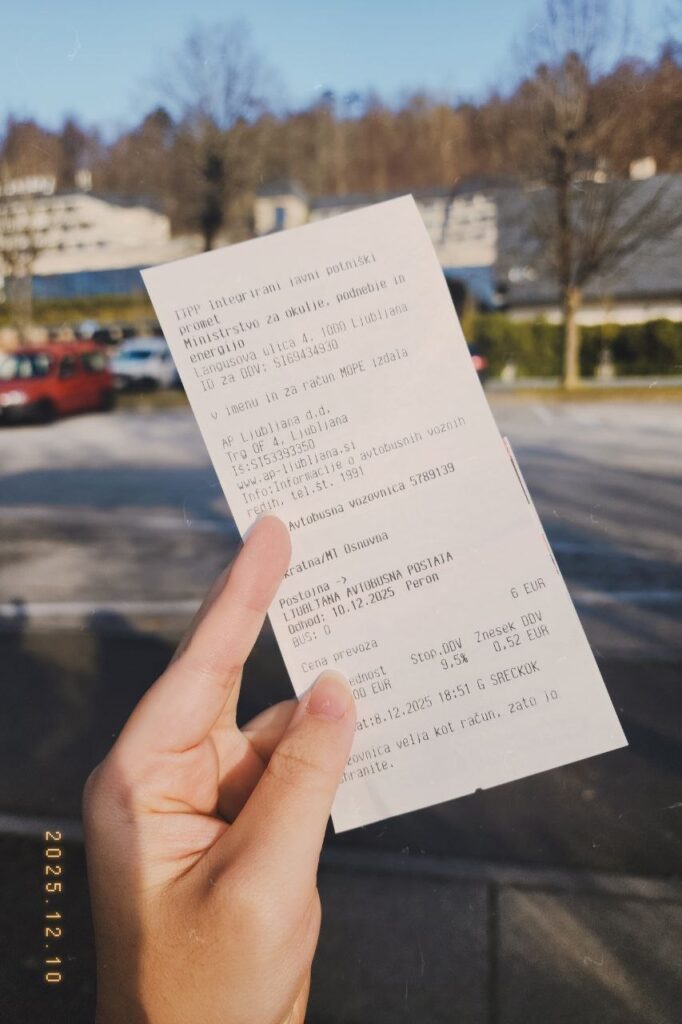 ITPP Integrirani javni potniški
promet
Ministrstvo za okolje, podnebje in
energijo
Langusova ulica 4, 1000 Ljubljana
ID za DDV: SI69434930
v imenu in za račun MOPE izdala
AP Ljubljana d.d.
Trg OF 4, Ljubljana
IŠ:SI53393350
www.ap-ljubljana.si
Info:Informacije o avtobusnih voznih
redih, tel.št. 1991
Avtobusna vozovnica 5789139
kratna/M1 Osnovna
Postojna ->
LJUBLJANA AVTOBUSNA POSTAJA
Odhod: 10.12.2025 Peron
BUS: 0
6 EUR
Cena prevoza
ednost Stop.DDV Znesek DDV
00 EUR 9,5% 0,52 EUR
at:8.12.2025 18:51 G SRECKOK
zovnica velja kot račun, zato jo
hranite.
2025.12.10